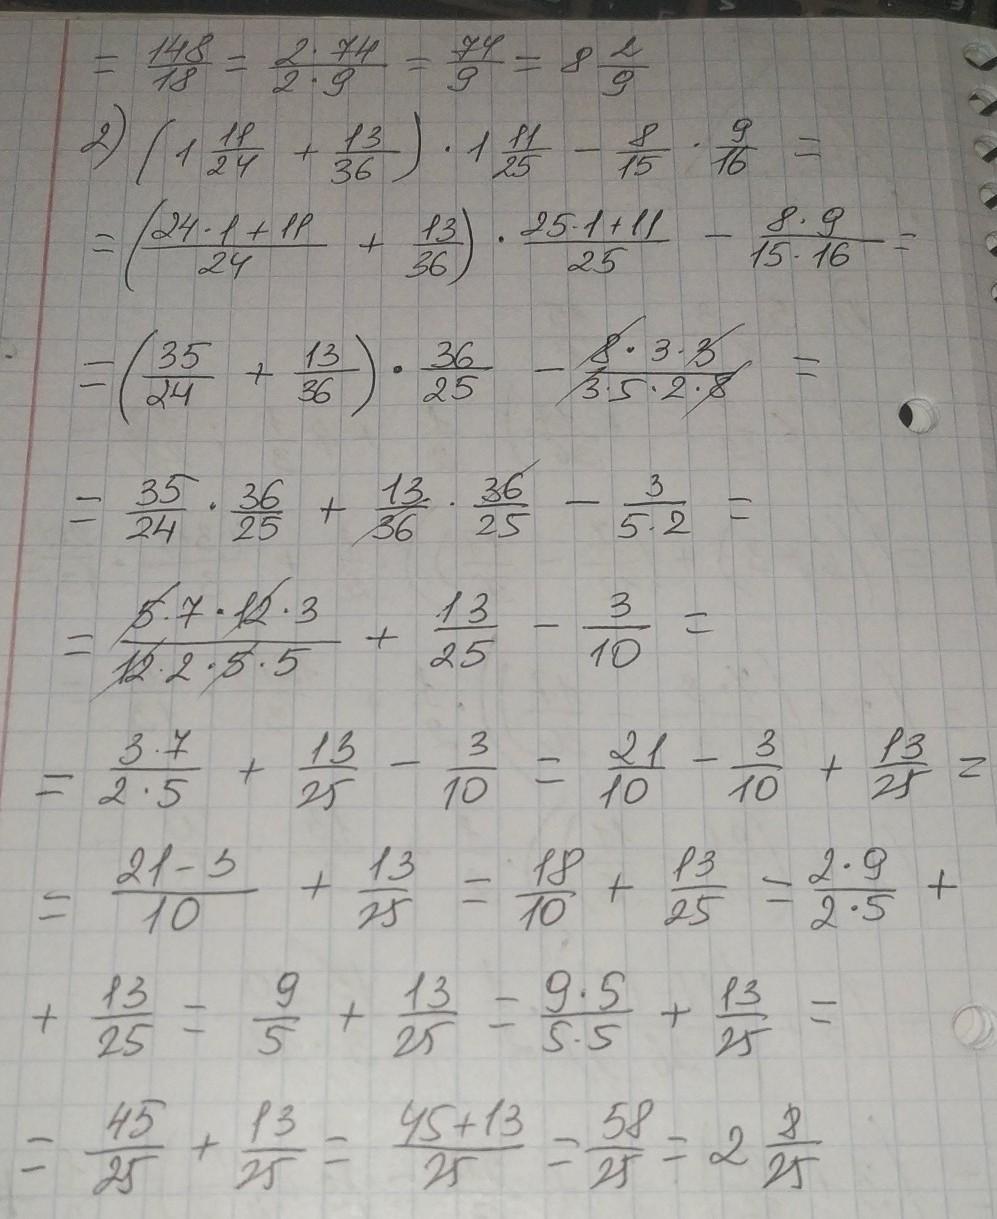 = 148/18 = 2·74/2·9 = 74/9 = 8 2/9
2) (1 11/24 + 13/36) · 1 11/25 - 8/15 · 9/16 =
= (24·1+11/24 + 13/36) · 25·1+11/25 - 8·9/15·16 =
= (35/24 + 13/36) · 36/25 - 8·3·3/3·5·2·8 =
= 35/24 · 36/25 + 13/36 · 36/25 - 3/5·2 =
= 5·7·12·3/12·2·5·5 + 13/25 - 3/10 =
= 3·7/2·5 + 13/25 - 3/10 = 21/10 - 3/10 + 13/25 =
= 21-3/10 + 13/25 = 18/10 + 13/25 = 2·9/2·5 +
+ 13/25 = 9/5 + 13/25 = 9·5/5·5 + 13/25 =
= 45/25 + 13/25 = 45+13/25 = 58/25 = 2 8/25